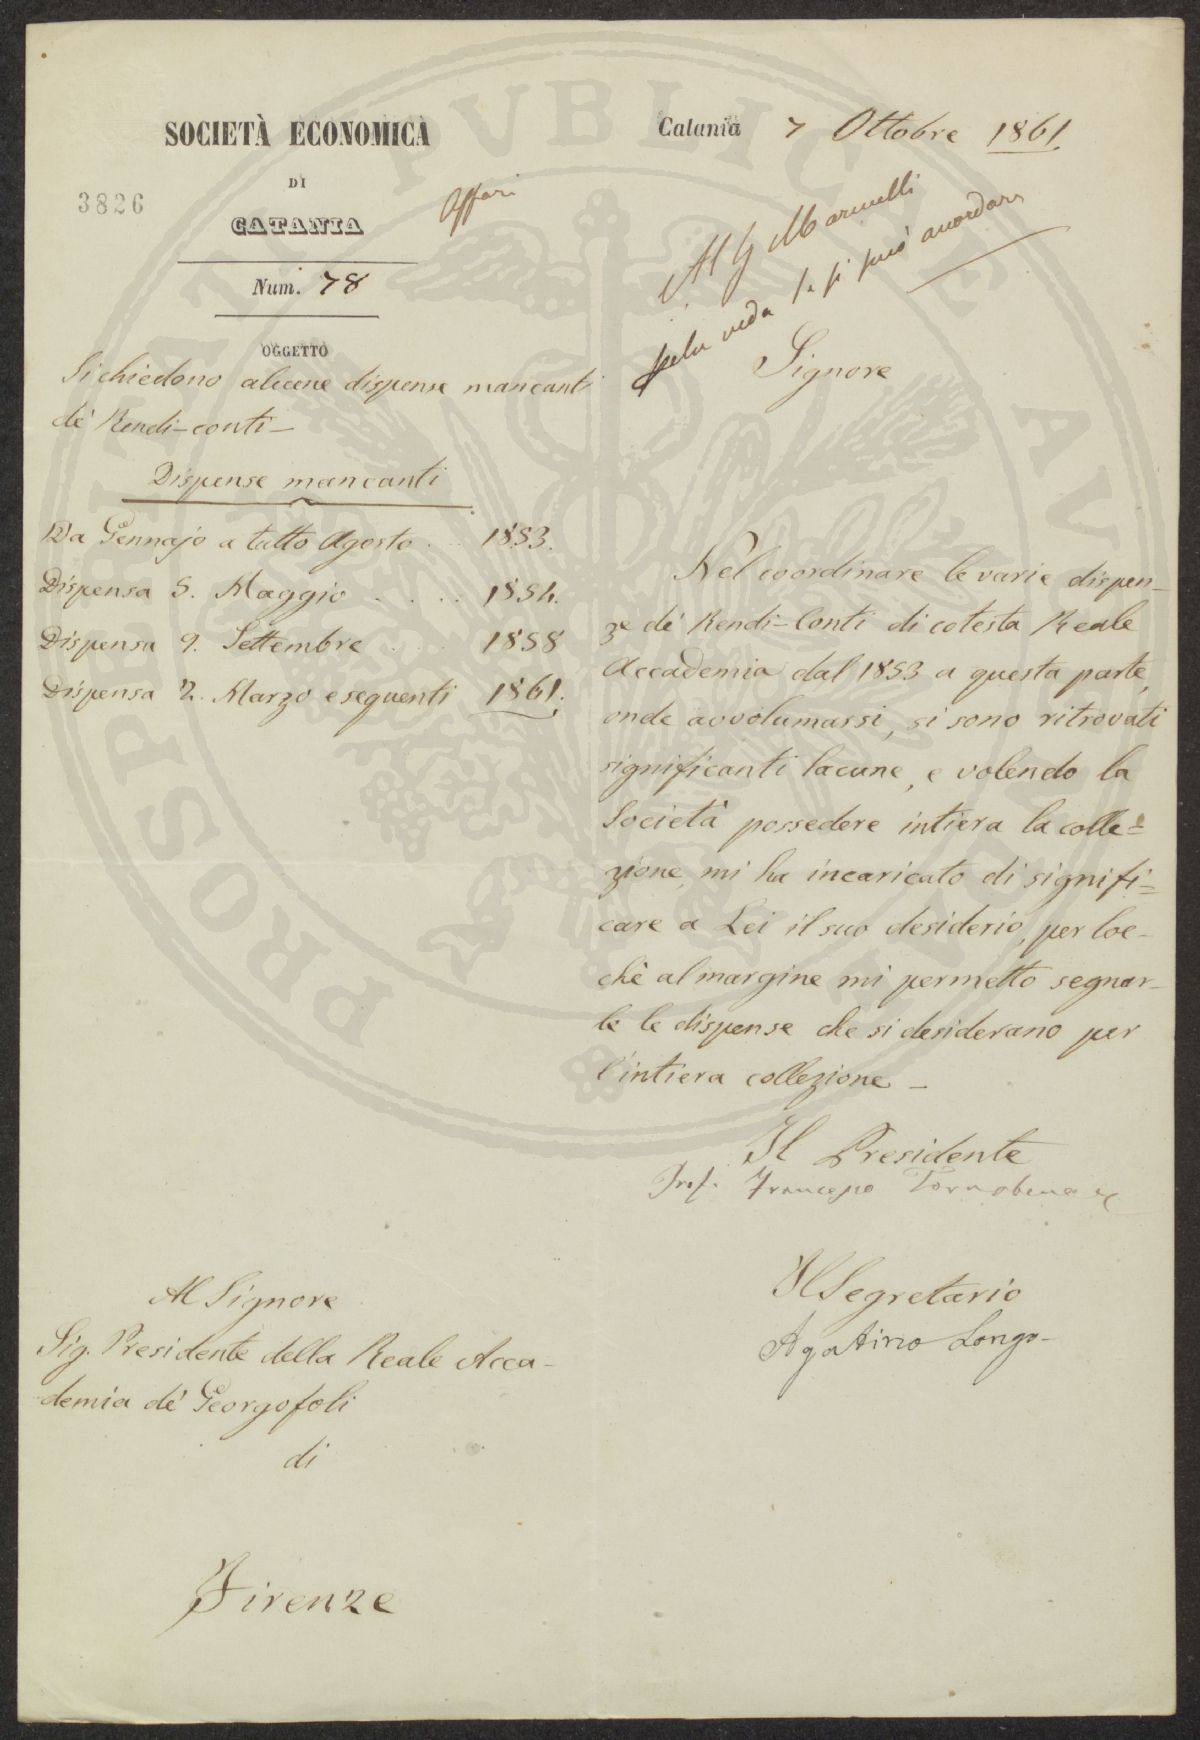 SOCIETÀ ECONOMICA
DI
CATANIA
3826
Num. 78
Affari
Catania 7 Ottobre 1861
Al
veda se si può accordare
OGGETTO
Si chiedono alcune dispense mancanti
de' Rendi-conti-
Dispense mancanti
Da Gennajo a tutto Agosto . . 1853.
Dispensa 5. Maggio . . . . 1854.
Dispensa 9. Settembre . . . 1858
Dispensa 2. Marzo e seguenti 1861.
Signore
Nel coordinare le varie dispen-
ze de' Rendi-Conti di cotesta Reale
Accademia dal 1853 a questa parte,
onde avvolumarsi, si sono ritrovati
significanti lacune, e volendo la
Società possedere intiera la colle=
zione, mi ha incaricato di signifi=
care a Lei il suo desiderio, per loc-
chè al margine mi permetto segnar-
le le dispense che si desiderano per
l'intiera collezione -
Il Presidente
Prof. Francesco Tornabene
Il Segretario
Agatino Longo-
Al Signore
Sig. Presidente della Reale Acca-
demia de' Georgofoli
di
Firenze
PROSPERITATI PUBLICAE AU